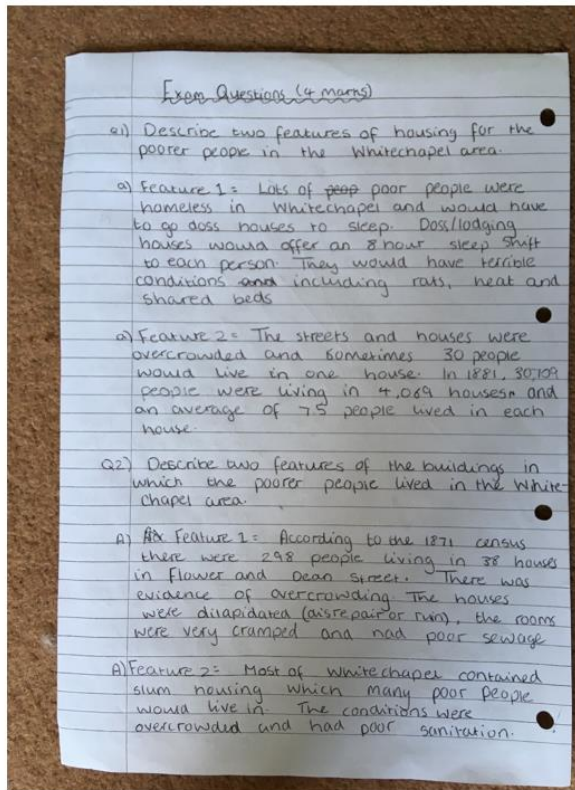 Exam Questions (4 marks)
Q1) Describe two features of housing for the
poorer people in the Whitechapel area.
a) Feature 1 = Lots of peop poor people were
homeless in Whitechapel and would have
to go doss houses to sleep. Doss/lodging
houses would offer an 8 hour sleep shift
to each person. They would have terrible
conditions and including rats, heat and
shared beds
a) Feature 2 = The streets and houses were
overcrowded and sometimes 30 people
would live in one house. In 1881, 30,709
people were living in 4,069 houses and
an average of 7.5 people lived in each
house.
Q2) Describe two features of the buildings in
which the poorer people lived in the White-
chapel area.
A) Feature 1 = According to the 1871 census
there were 298 people living in 38 houses
in Flower and Dean Street. There was
evidence of overcrowding. The houses
were dilapidated (disrepair or ruin), the rooms
were very cramped and had poor sewage
A) Feature 2 = Most of whitechapel contained
slum housing which many poor people
would live in. The conditions were
overcrowded and had poor sanitation.